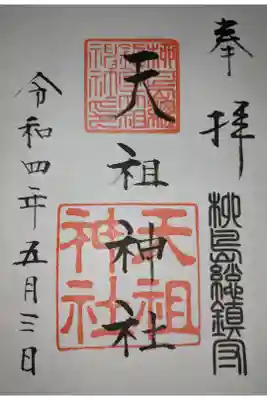 奉拝
柳島總鎮守
天祖神社
天祖神社
令和四年五月三日